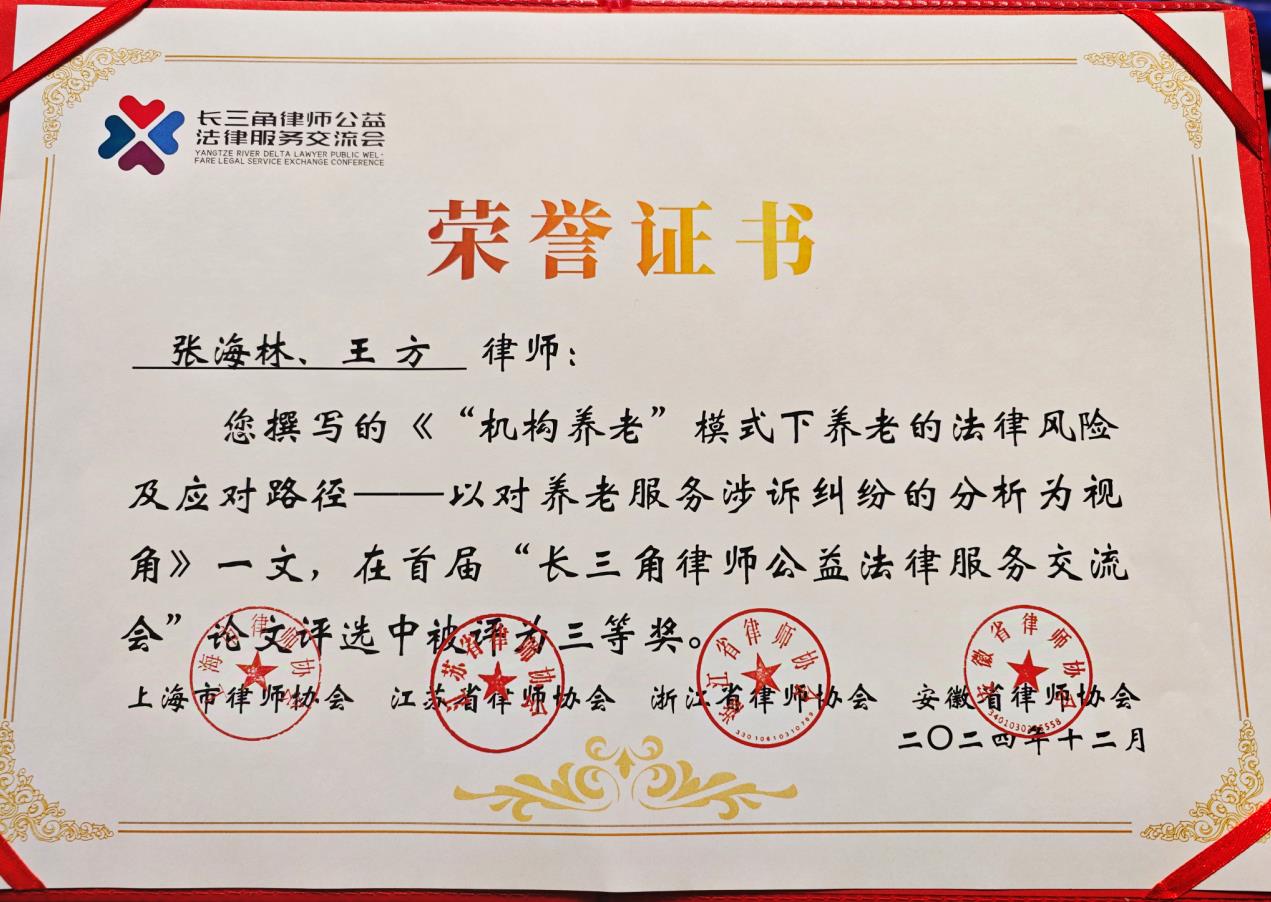 长三角律师公益
法律服务交流会
YANGTZE RIVER DELTA LAWYER PUBLIC WEL-
FARE LEGAL SERVICE EXCHANGE CONFERENCE
荣誉证书
张海林、王方 律师：
您撰写的《“机构养老”模式下养老的法律风险
及应对路径——以对养老服务涉诉纠纷的分析为视
角》一文，在首届“长三角律师公益法律服务交流
会”论文评选中被评为三等奖。
上海市律师协会 江苏省律师协会 浙江省律师协会 安徽省律师协会
二〇二四年十二月
上海市律师协会
江苏省律师协会
浙江省律师协会
安徽省律师协会